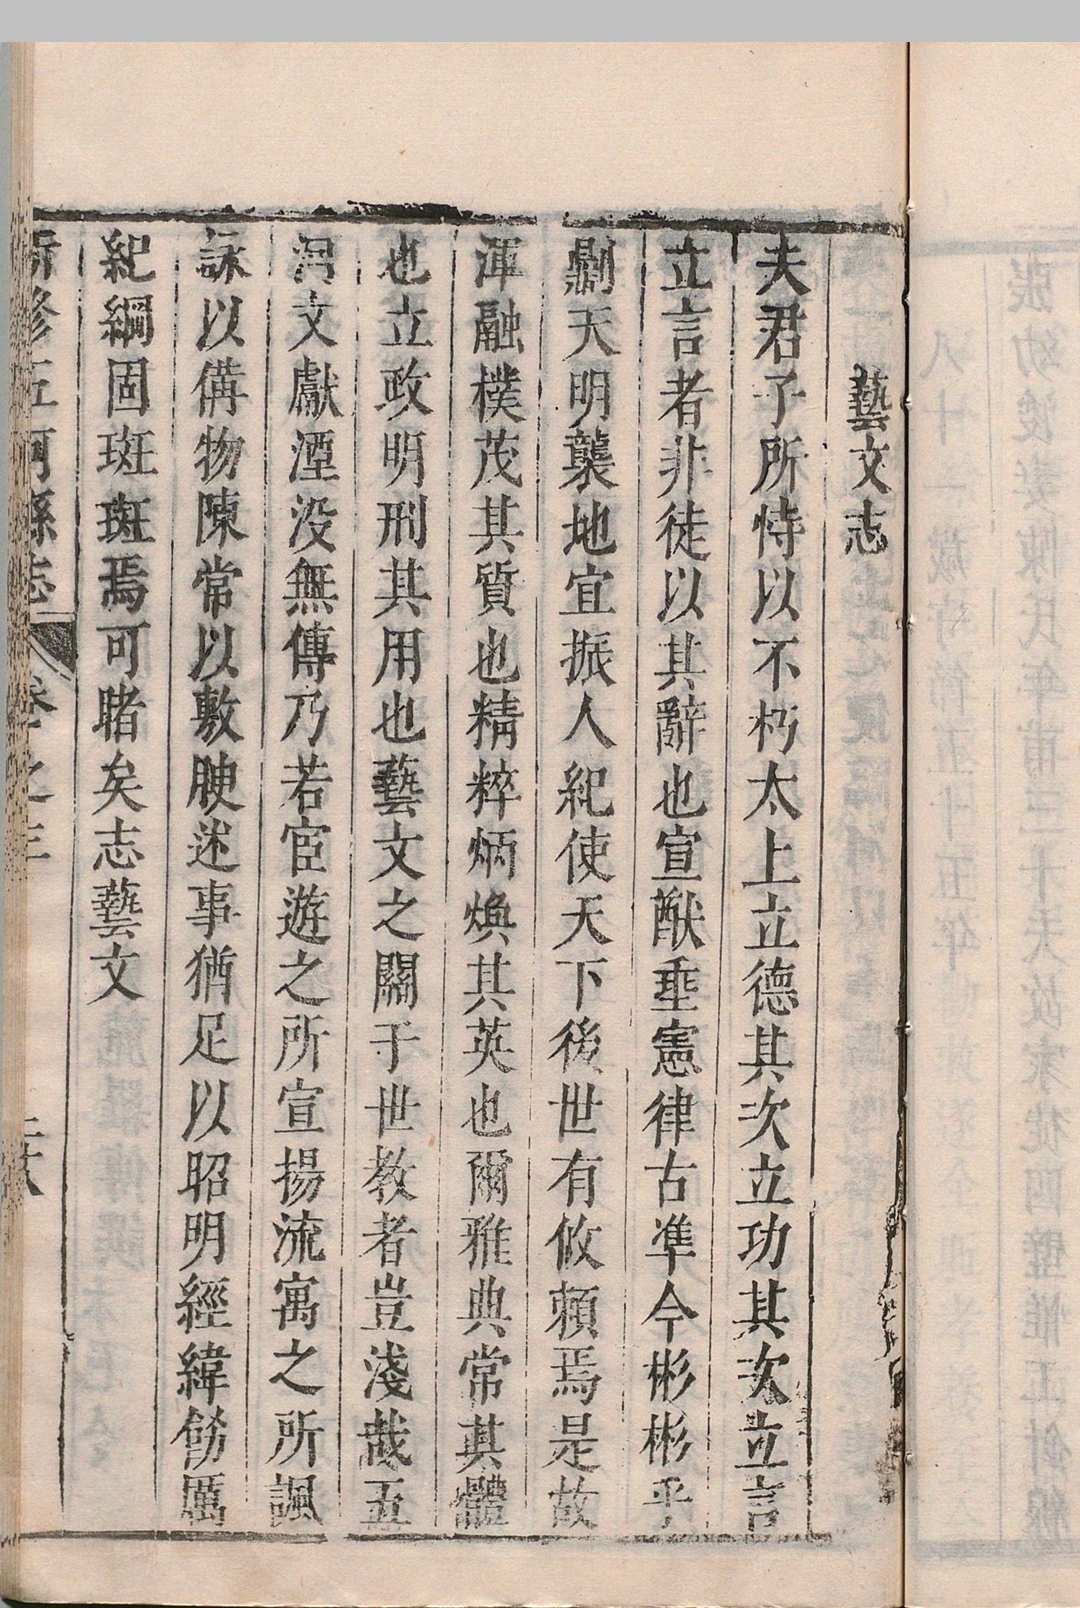 藝文志
夫君子所恃以不朽太上立德其次立功其次立言
立言者非徒以其辭也宣猷垂憲律古準今彬彬乎
劓天明襲地宜振人紀使天下後世有攸頼焉是故
渾融樸茂其質也精粹炳煥其英也爾雅典常其體
也立政明刑其用也藝文之關于世教者豈淺哉五
河文獻湮没無傳乃若宦遊之所宣揚流寓之所諷
詠以備物陳常以敷腴述事猶足以昭明經緯飭厲
紀綱固斑斑焉可睹矣志藝文
新修五河縣志 卷之三